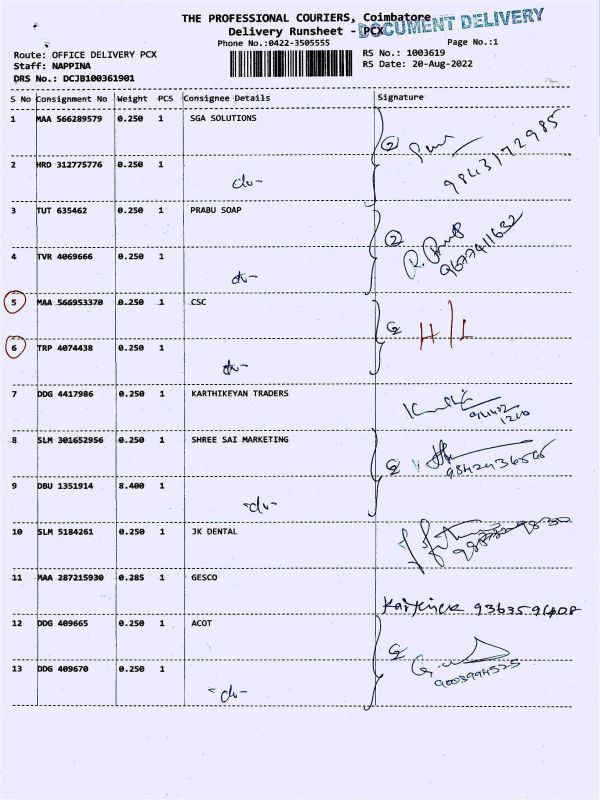 THE PROFESSIONAL COURIERS, Coimbatore
DOCUMENT DELIVERY
Delivery Runsheet - PCX
Phone No.:0422-3505555 Page No.:1
Route: OFFICE DELIVERY PCX RS No.: 1003619
Staff: NAPPINA RS Date: 20-Aug-2022
DRS No.: DCJB100361901
S No Consignment No Weight PCS Consignee Details Signature
1 MAA 566289579 0.250 1 SGA SOLUTIONS
2 9843172985
2 HRD 312775776 0.250 1 -do-
3 TUT 635462 0.250 1 PRABU SOAP
2 9677411632
4 TVR 4069666 0.250 1 -do-
5 MAA 566953370 0.250 1 CSC
2 H/L
6 TRP 4074438 0.250 1 -do-
7 DDG 4417986 0.250 1 KARTHIKEYAN TRADERS
8 SLM 301652956 0.250 1 SHREE SAI MARKETING
2
9 DBU 1351914 8.400 1 -do-
10 SLM 5184261 0.250 1 JK DENTAL
11 MAA 287215930 0.285 1 GESCO
12 DDG 409665 0.250 1 ACOT
2 9003994525
13 DDG 409670 0.250 1 -do-